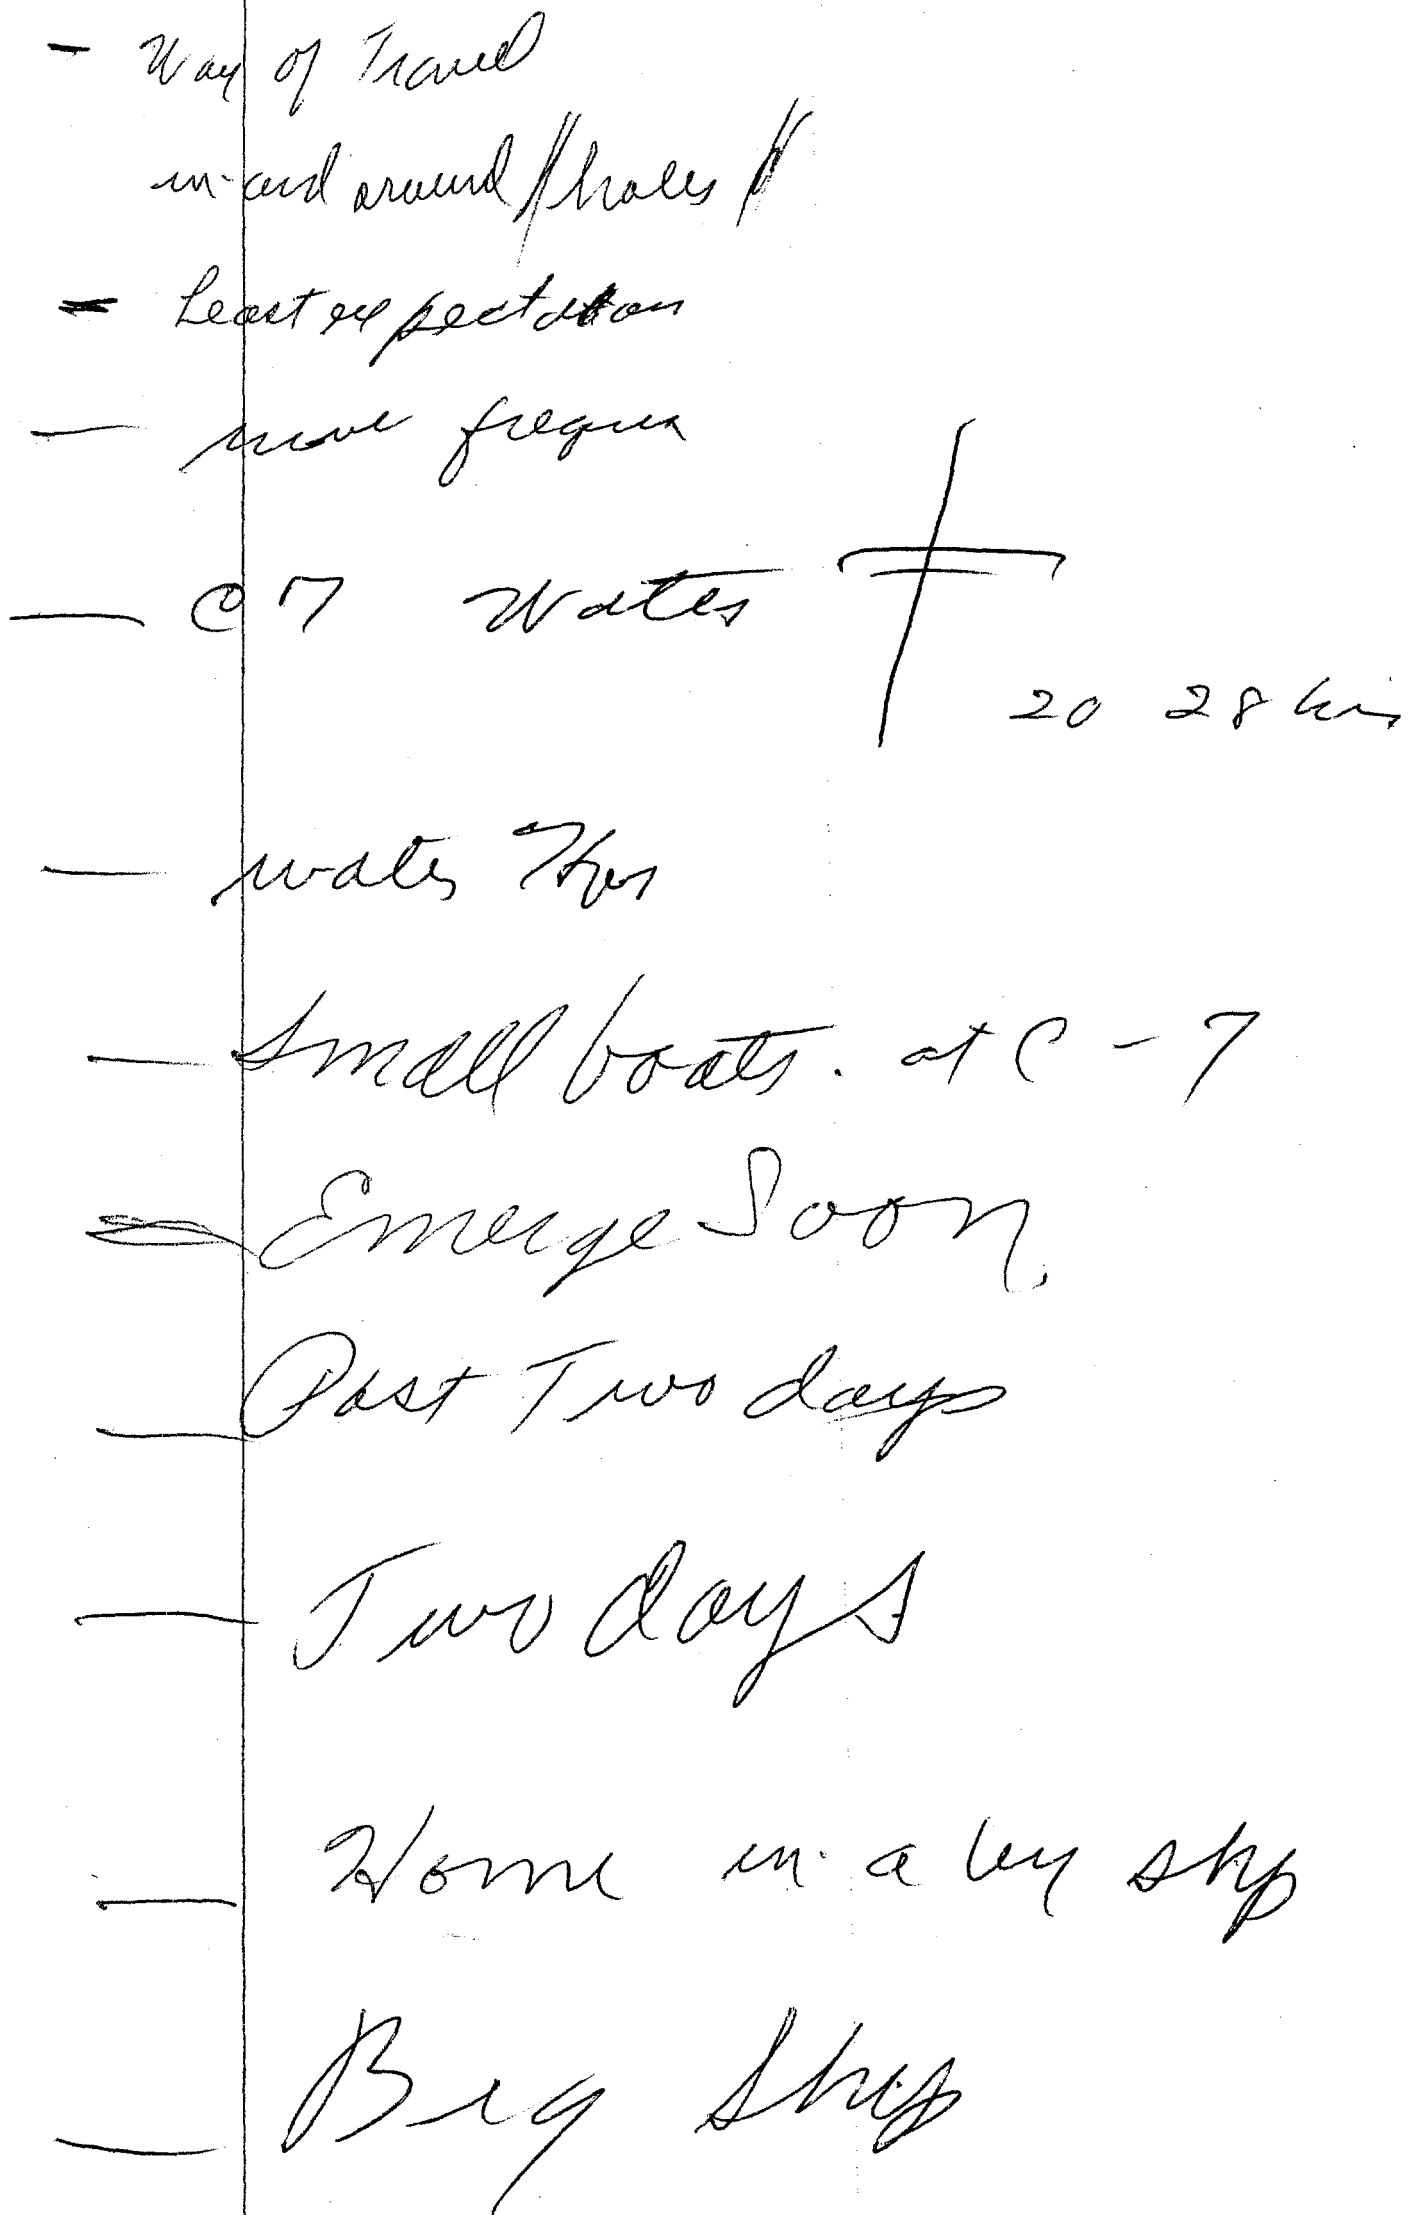 - Way of Travel
in-and around //holes//
- Least expectation
- more
- C7 Water
20 28 hrs
- water
- Small boats. at C-7
- Emerge Soon.
- Past Two days
- Two days
- Home in a big ship
- Big Ship